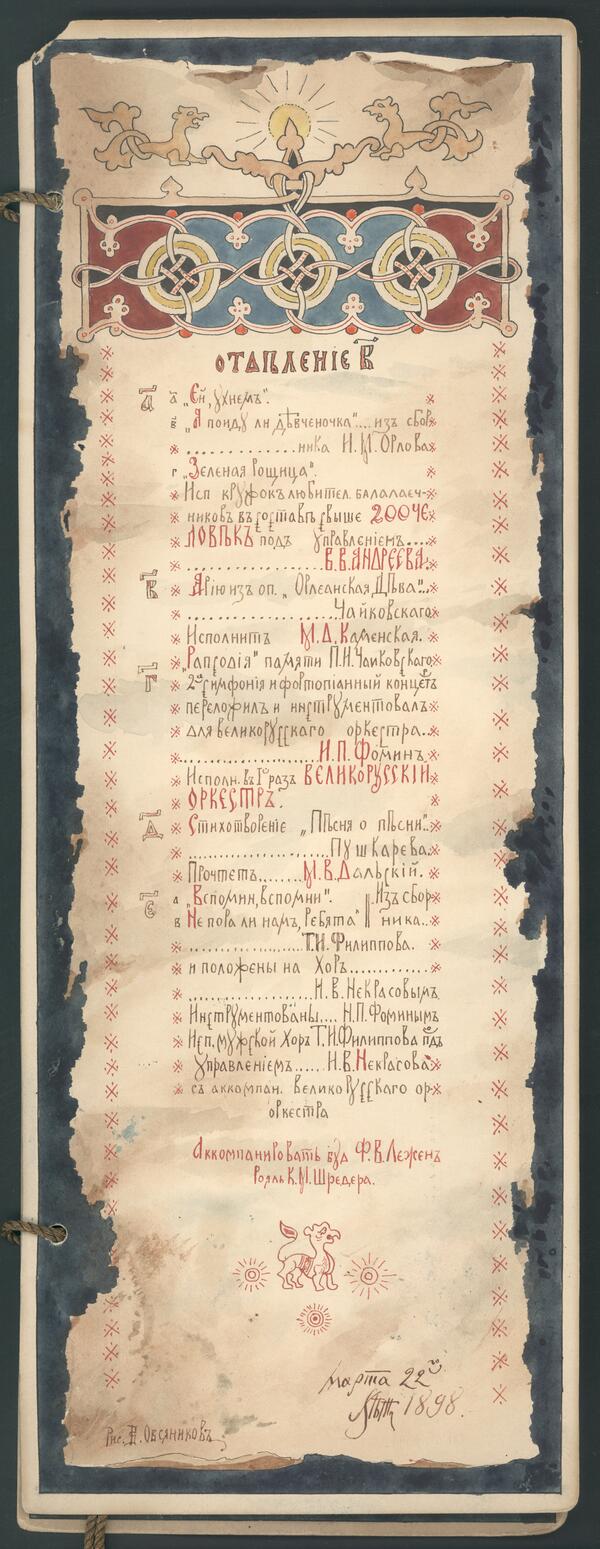 отдѣленіе в҃
а҃ а „Ей, ухнемъ".
в „Я пойду ли дѣвченочка"... изъ сбор
ника И.М. Орлова
г „Зеленая Рощица".
Исп кружок любител. балалаеч-
никовъ въ составѣ свыше 200 че
ловѣкъ подъ управленіемъ....
В.В. Андреева.
в҃ Арію из оп. „Орлеанская Дѣва"...
Чайковскаго
Исполнитъ М.Д. Каменская.
г҃ „Рапсодія" памяти П.И. Чайковскаго
2ая симфонія и фортопіанный концертъ
переложилъ и инструментовалъ
для великорусскаго оркестра..
Н.П. Фоминъ.
Исполн. въ 1й разъ Великорусскій
оркестръ.
д҃ Стихотвореніе „Пѣсня о пѣсни"..
Пушкарева.
Прочтетъ........ М.В. Дальскій.
е҃ а „Вспомин, вспомни". Изъ сбор
в Не пора ли намъ, ребята" ника..
Т.И. Филиппова.
и положены на Хоръ............
И.В. Некрасовымъ
Инструментованы.... Н.П. Фоминымъ
Исп. мужской Хоръ Т.И. Филиппова подъ
управленіемъ...... И.В. Некрасова
съ аккомпан. великорусскаго ор
оркестра
Аккомпанировать буд Ф.В. Лежен
Рояль К.М. Шредера.
марта 22го
1898.
Рис. А. Овсяниковъ